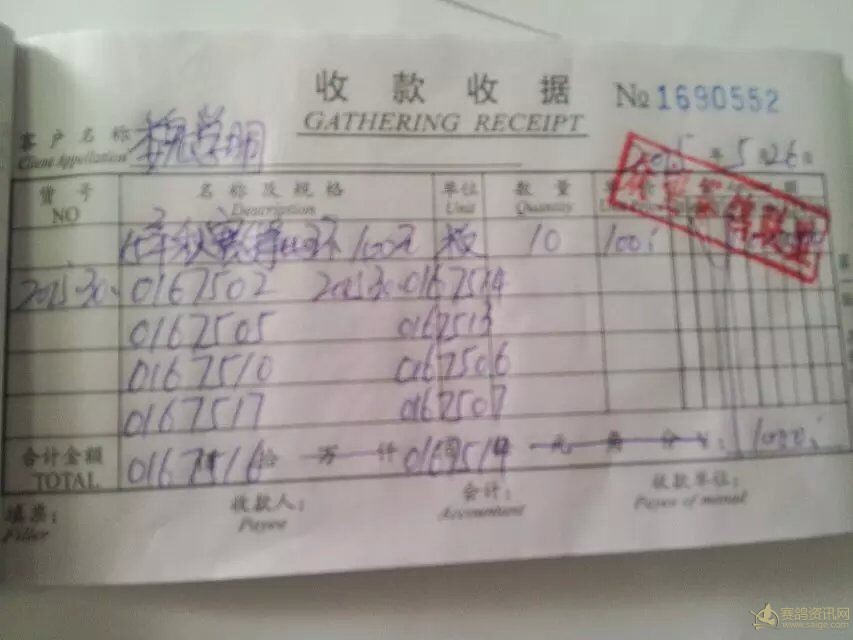 收款收据 № 1690552
GATHERING RECEIPT
客户名称
Client Appellation
2015 年 5 月 26 日
货号 名称及规格 单位 数量
NO Description Unit Quantity
100元 枚 10 100
2015-30- 0167502 2015-30-0167514
0167505 0167513
0167510 0167506
0167517 0167507
合计金额 0167516 拾 万 仟 元 角 分 ¥: 1000
TOTAL
填票: 收款人: 会计: 收款单位:
Filler Payee Accountant Payee of manual
赛鸽资讯网
www.saige.com